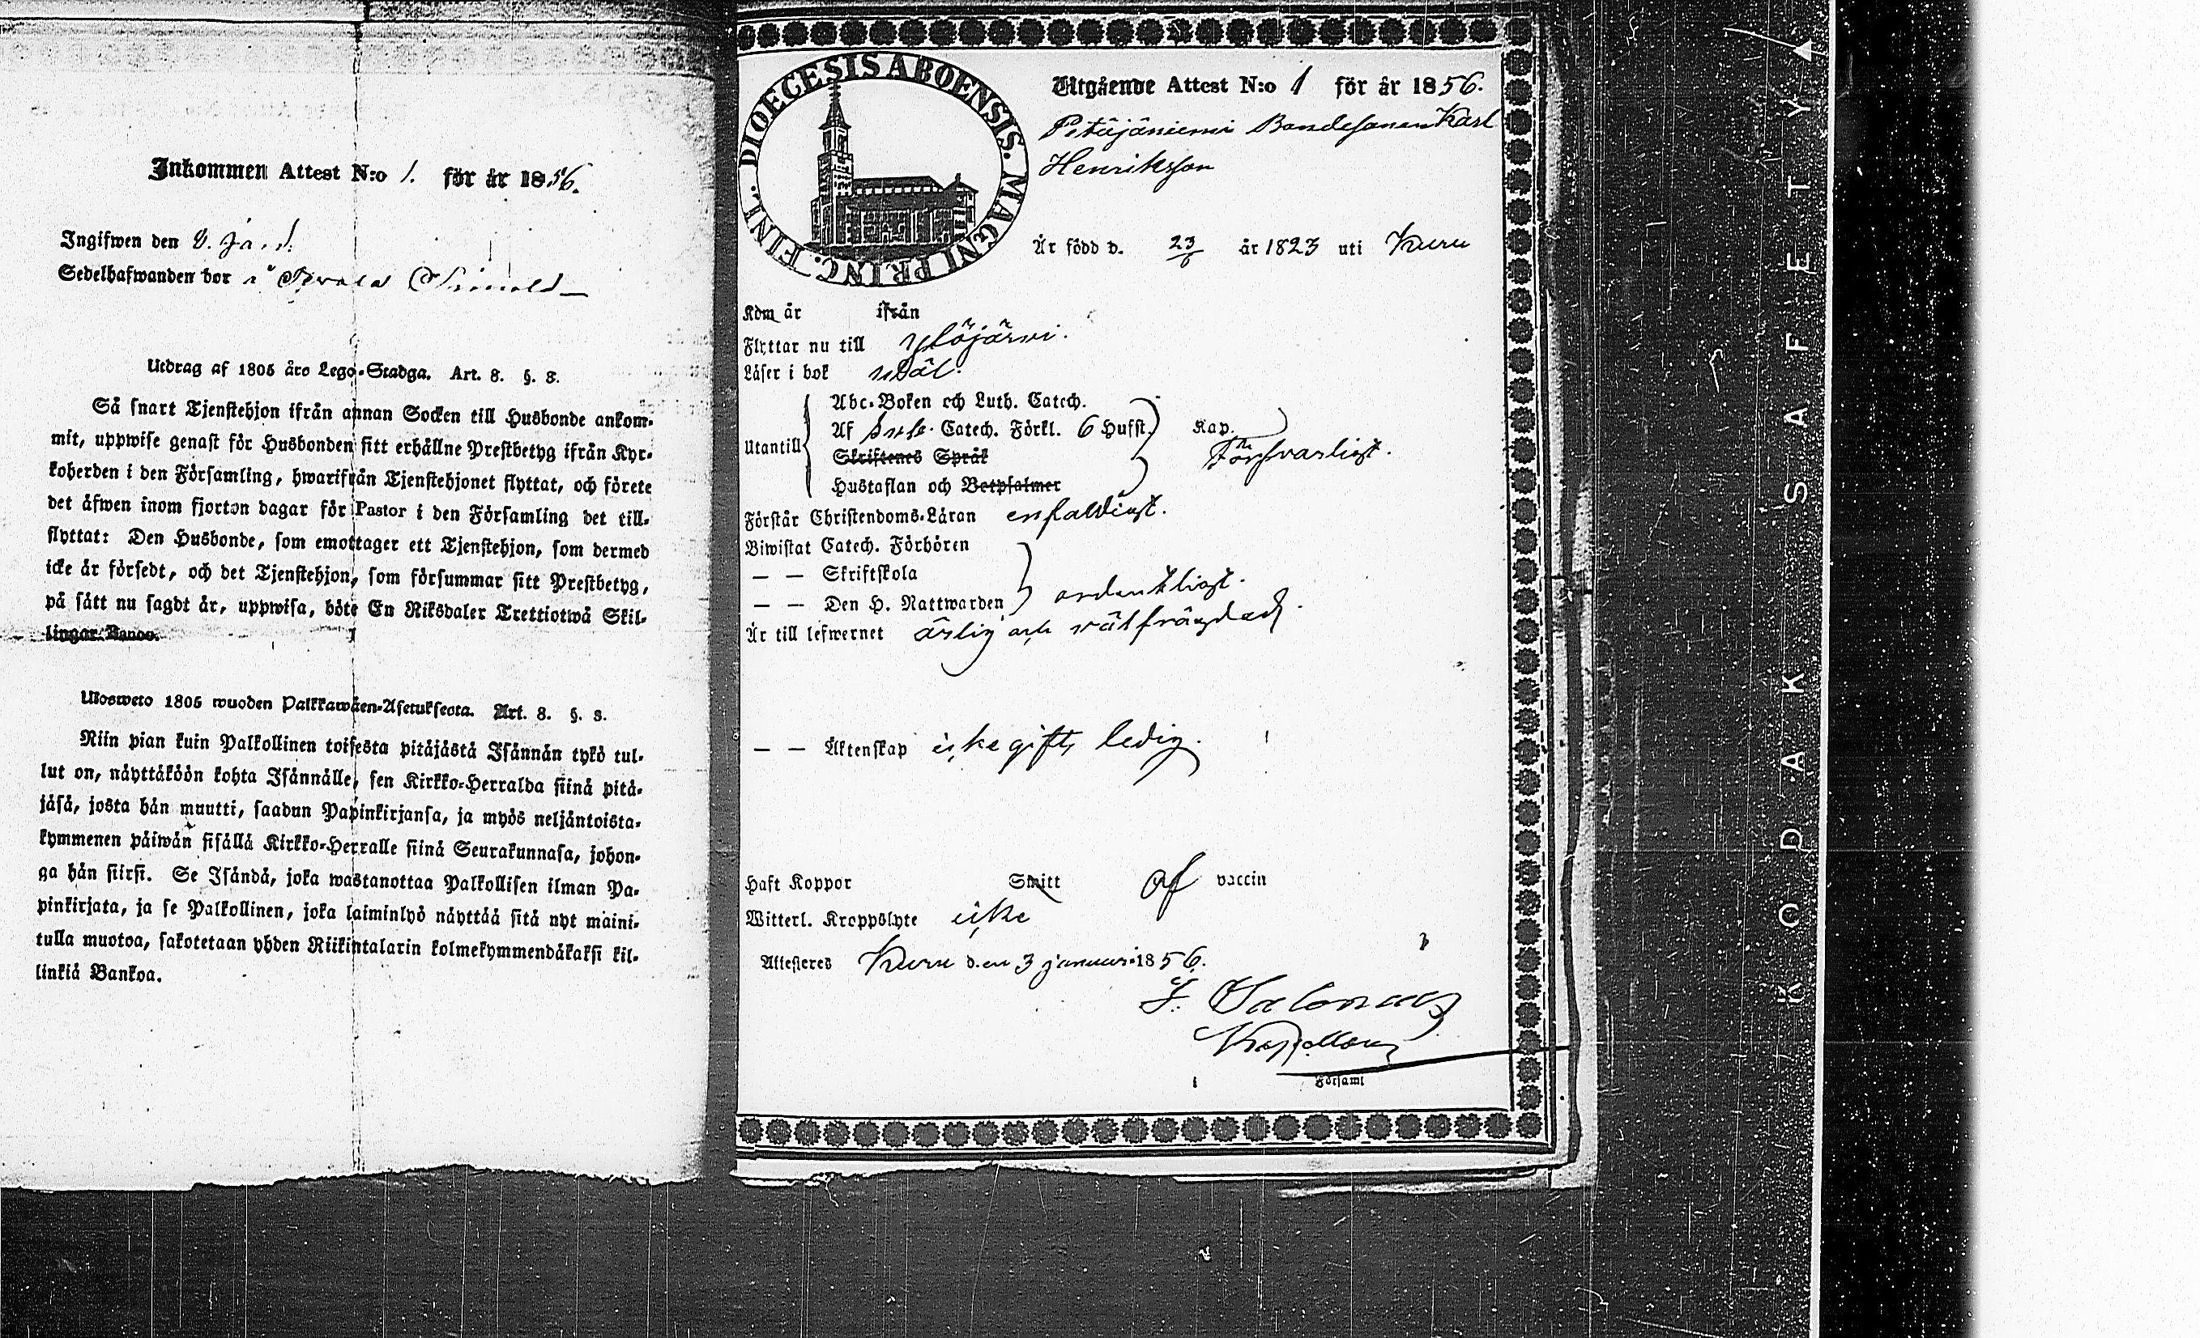 Inkommen Attest N:o 1. för år 1856.
Ingifwen den
Sedelhafwanden bor
Utdrag af 1805 års Lego-Stadga. Art. 8. §. 3.
Så snart Tjenstehjon ifrån annan Socken till Husbonde ankom-
mit, uppwise genast för Husbonden sitt erhållne Prestbetyg ifrån Kyr-
koherden i den Församling, hwarifrån Tjenstehjonet flyttat, och förete
det äfwen inom fjorton dagar för Pastor i den Församling det till-
flyttat: Den Husbonde, som emottager ett Tjenstehjon, som dermed
icke är försedt, och det Tjenstehjon, som försummar sitt Prestbetyg,
på sätt nu sagdt är, uppwisa, böte En Riksdaler Trettiotwå Skil-
lingar Banco.
Ulosweto 1805 wuoden Palkkawäen-Asetuksesta. Art. 8. §. 3.
Niin pian kuin Palkollinen toisesta pitäjästä Isännän tykö tul-
lut on, näyttäköön kohta Isännälle, sen Kirkko-Herralda siinä pitä-
jäsä, josta hän muutti, saadun Papinkirjansa, ja myös neljäntoista-
kymmenen päiwän sisällä Kirkko-Herralle siinä Seurakunnasa, johon-
ga hän siirsi. Se Isändä, joka wastanottaa Palkollisen ilman Pa-
pinkirjata, ja se Palkollinen, joka laiminlyö näyttää sitä nyt maini-
tulla muotoa, sakotetaan yhden Riikintalarin kolmekymmendäkaksi kil-
linkiä Bankoa.
DIOECESIS ABOENSIS. MAGNI PRINC. FINL.
Utgående Attest N:o 1 för år 1856.
Petäjäniemi Bondesonen Karl
Henriksson
Är född d. 23/6 år 1823 uti Kuru
Kom år ifrån
Flyttar nu till Ylöjärvi.
Läser i bok wäl.
Utantill
Abc-Boken och Luth. Catech.
Af Catech. Förkl. 6 Hufst. Kap.
Skriftenes Språk Försvarligt.
Hustaflan och Botpsalmer
Förstår Christendoms-Läran enfaldigt.
Biwistat Catech. Förhören
— — Skriftskola
— — Den H. Nattwarden ordentligt.
Är till lefwernet ärlig och wälfrägdad.
— — Äktenskap icke gift, ledig.
Haft Koppor Smitt af vaccin
Witterl. Kroppslyte icke
Attesteres Kuru den 3 januari 1856.
Kapellan
i Församl
KODAK SAFETY